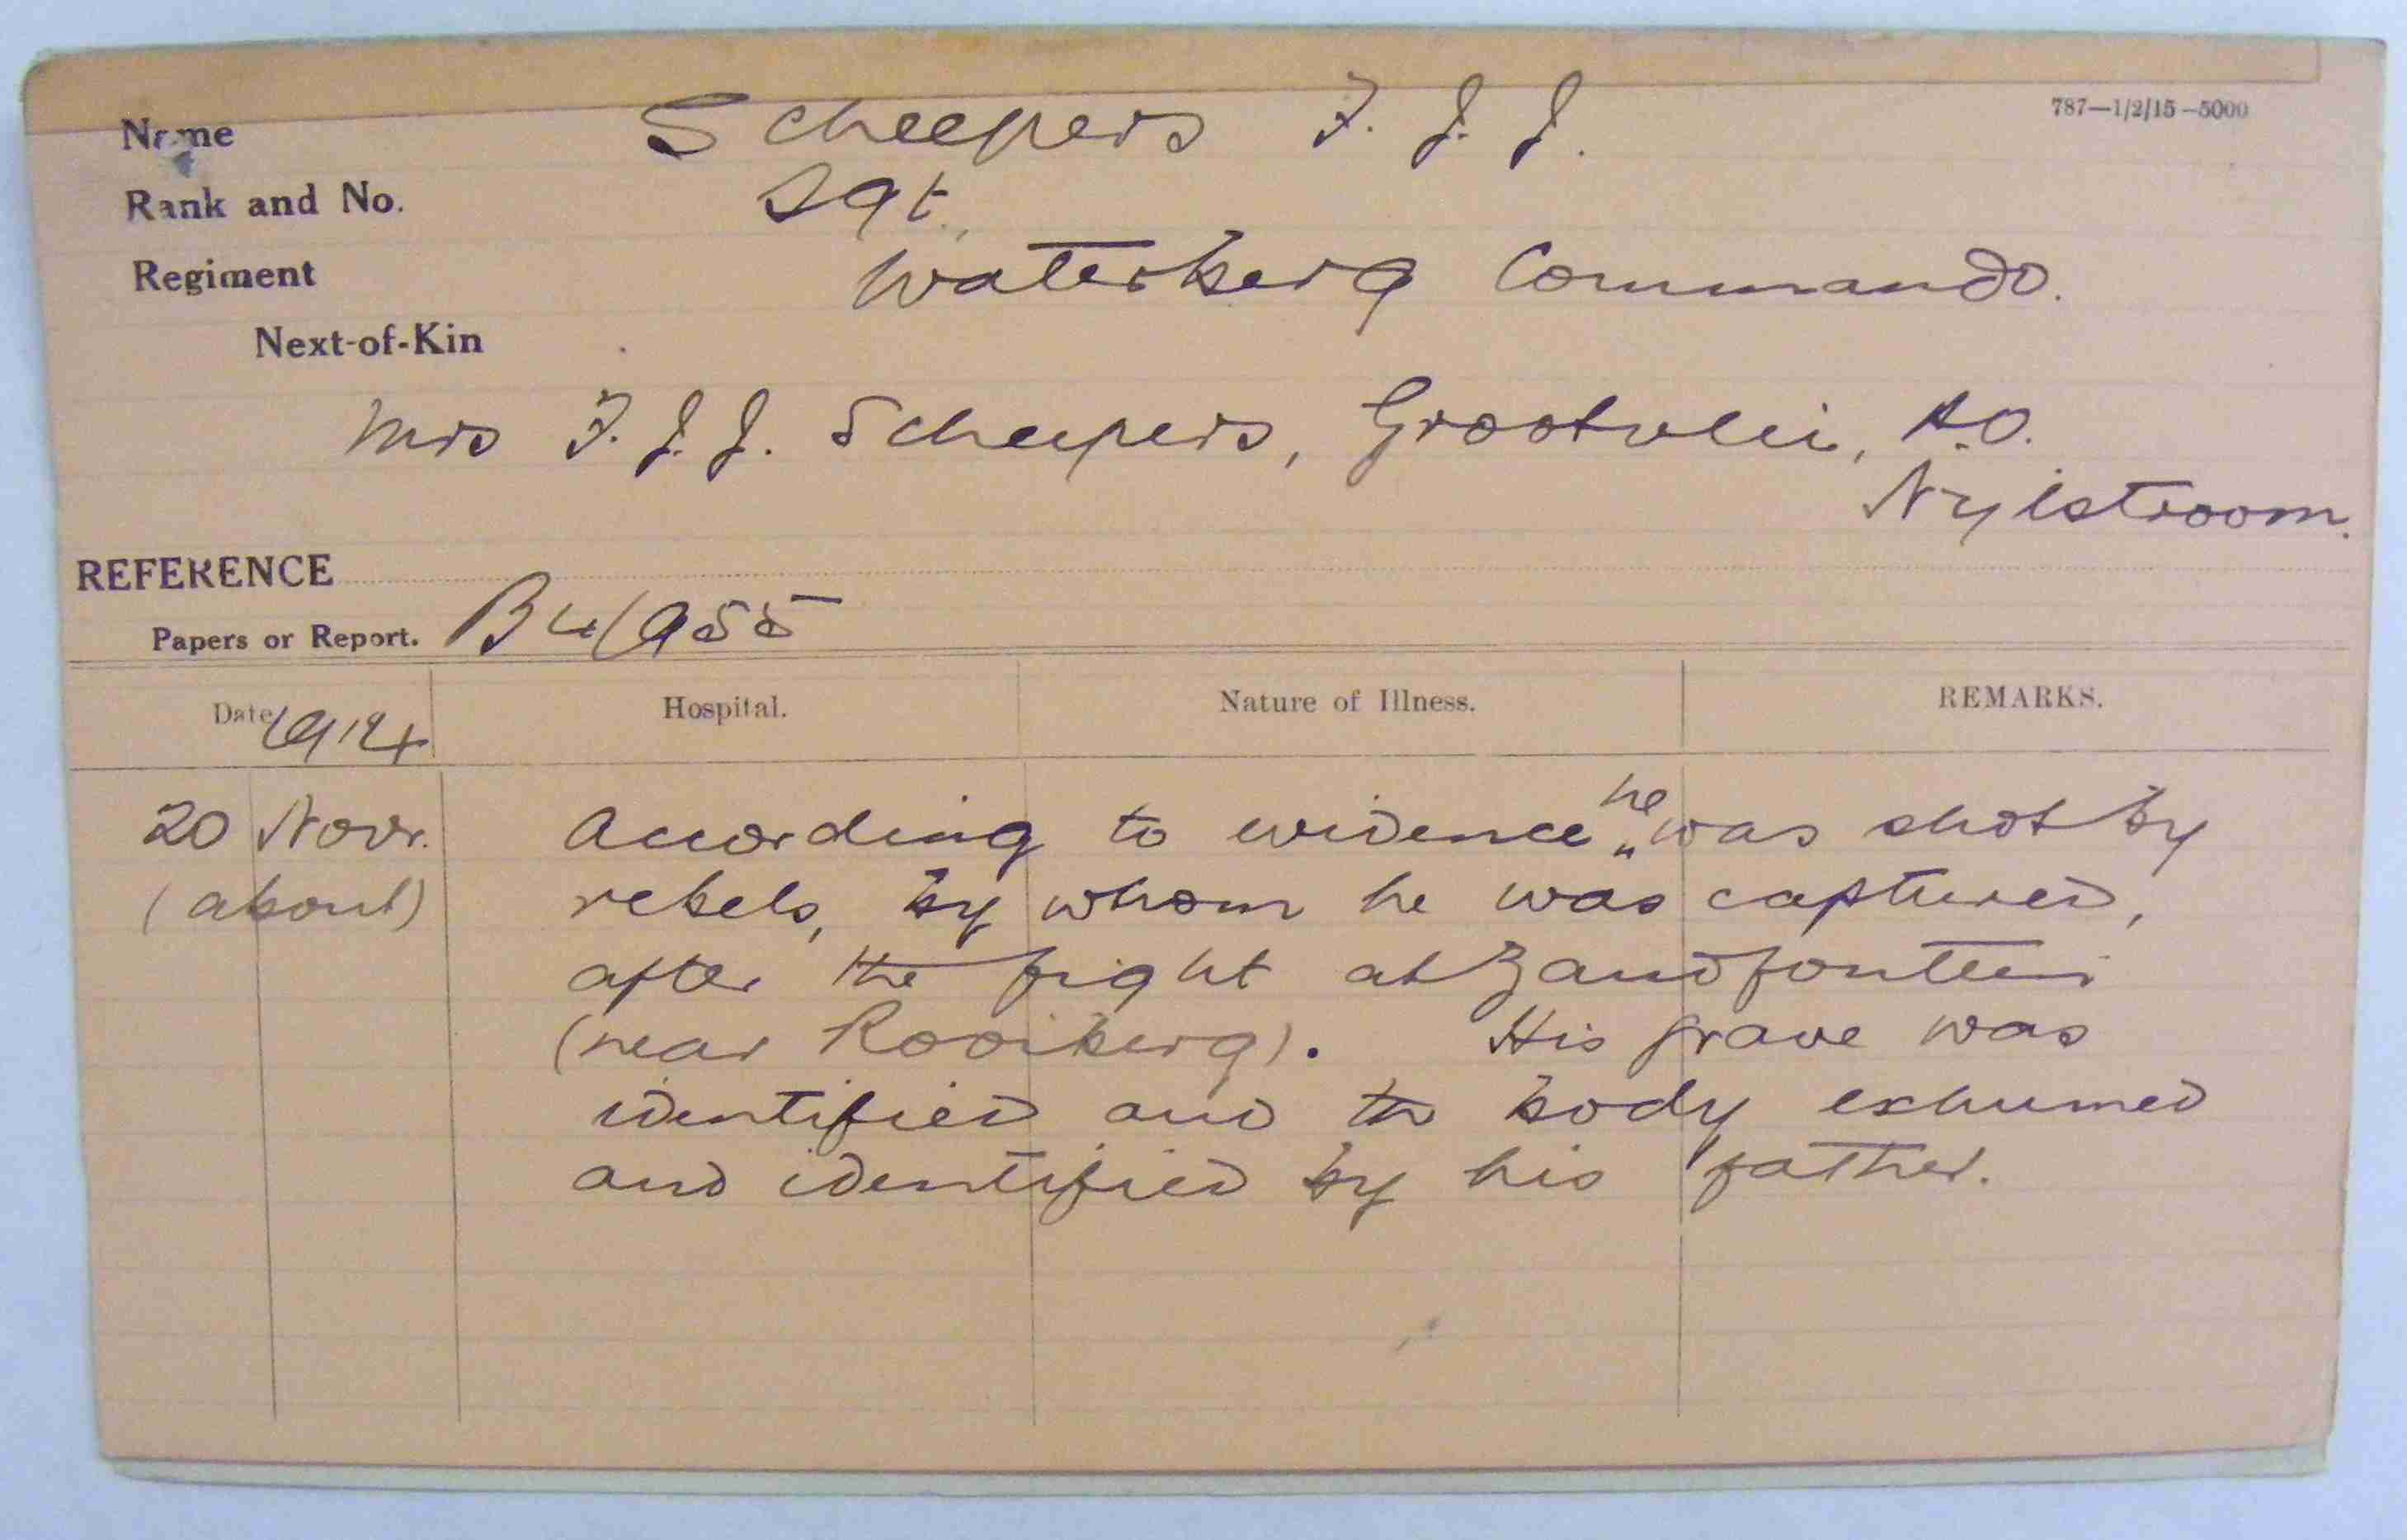 787—1/2/15—5000
Name Scheepers F. J. J.
Rank and No. Sgt.
Regiment Waterberg Commando.
Next-of-Kin
Mrs F. J. J. Scheepers, Grootvlei, P.O.
Nylstroom.
REFERENCE
Papers or Report. B4/955
Date 1914 Hospital. Nature of Illness. REMARKS.
20 Novr. According to evidence he was shot by
(about) rebels, by whom he was captured,
after the fight at Zandfontein
(near Rooiberg). His grave was
identified and the body exhumed
and identified by his father.